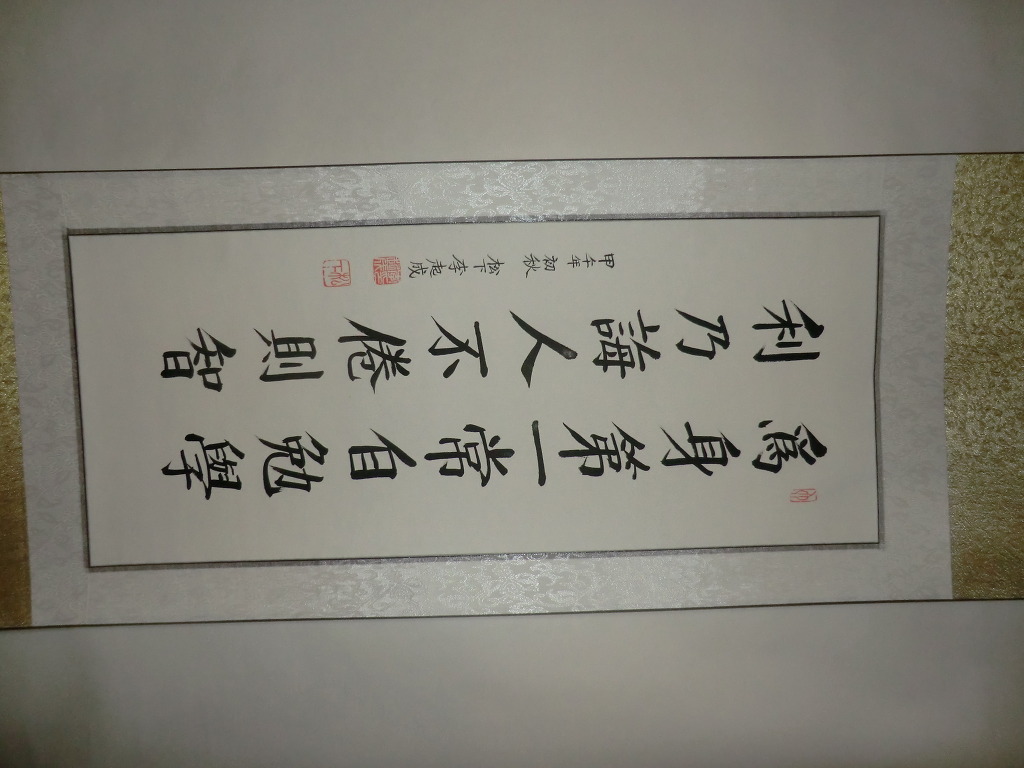 為身第一常自勉學
利乃誨人不倦則智
甲午年初秋 松下李成